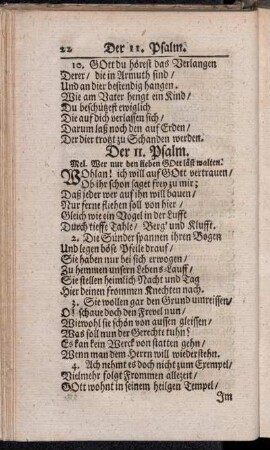 22 Der 11. Psalm.
10. GOtt du hörest das Verlangen
Derer/ die in Armuth sind/
Und an dir bestendig hangen.
Wie am Vater hengt ein Kind/
Du beschützest ewiglich
Die auf dich verlassen sich/
Darum laß noch den auf Erden/
Der dir trotzt zu Schanden werden.
Der 11. Psalm.
Mel. Wer nur den lieben Gott läst walten.
WOhlan! ich will auf Gott vertrauen/
Ob ihr schon saget frey zu mir;
Daß jeder wer auf ihn will bauen/
Nur ferne fliehen soll von hier/
Gleich wie ein Vogel in der Lufft
Durch tieffe Thäle/ Berg' und Klufft.
2. Die Sünder spannen ihren Bogen
Und legen böse Pfeile drauf/
Sie haben nur bei sich erwogen/
Zu hemmen unsern Lebens-Lauff/
Sie stellen heimlich Nacht und Tag
Hier deinen frommen Knechten nach.
3. Sie wollen gar den Grund umreissen/
O! schaue doch den Frevel nun/
Wiewohl sie schön von aussen gleissen/
Was soll nun der Gerechte tuhn?
Es kan kein Werck von statten gehn/
Wenn man dem Herrn will wiederstehn.
4. Ach nehmt es doch nicht zum Exempel/
Vielmehr folgt Frommen allezeit/
GOtt wohnt in seinem heilgen Tempel/
Im